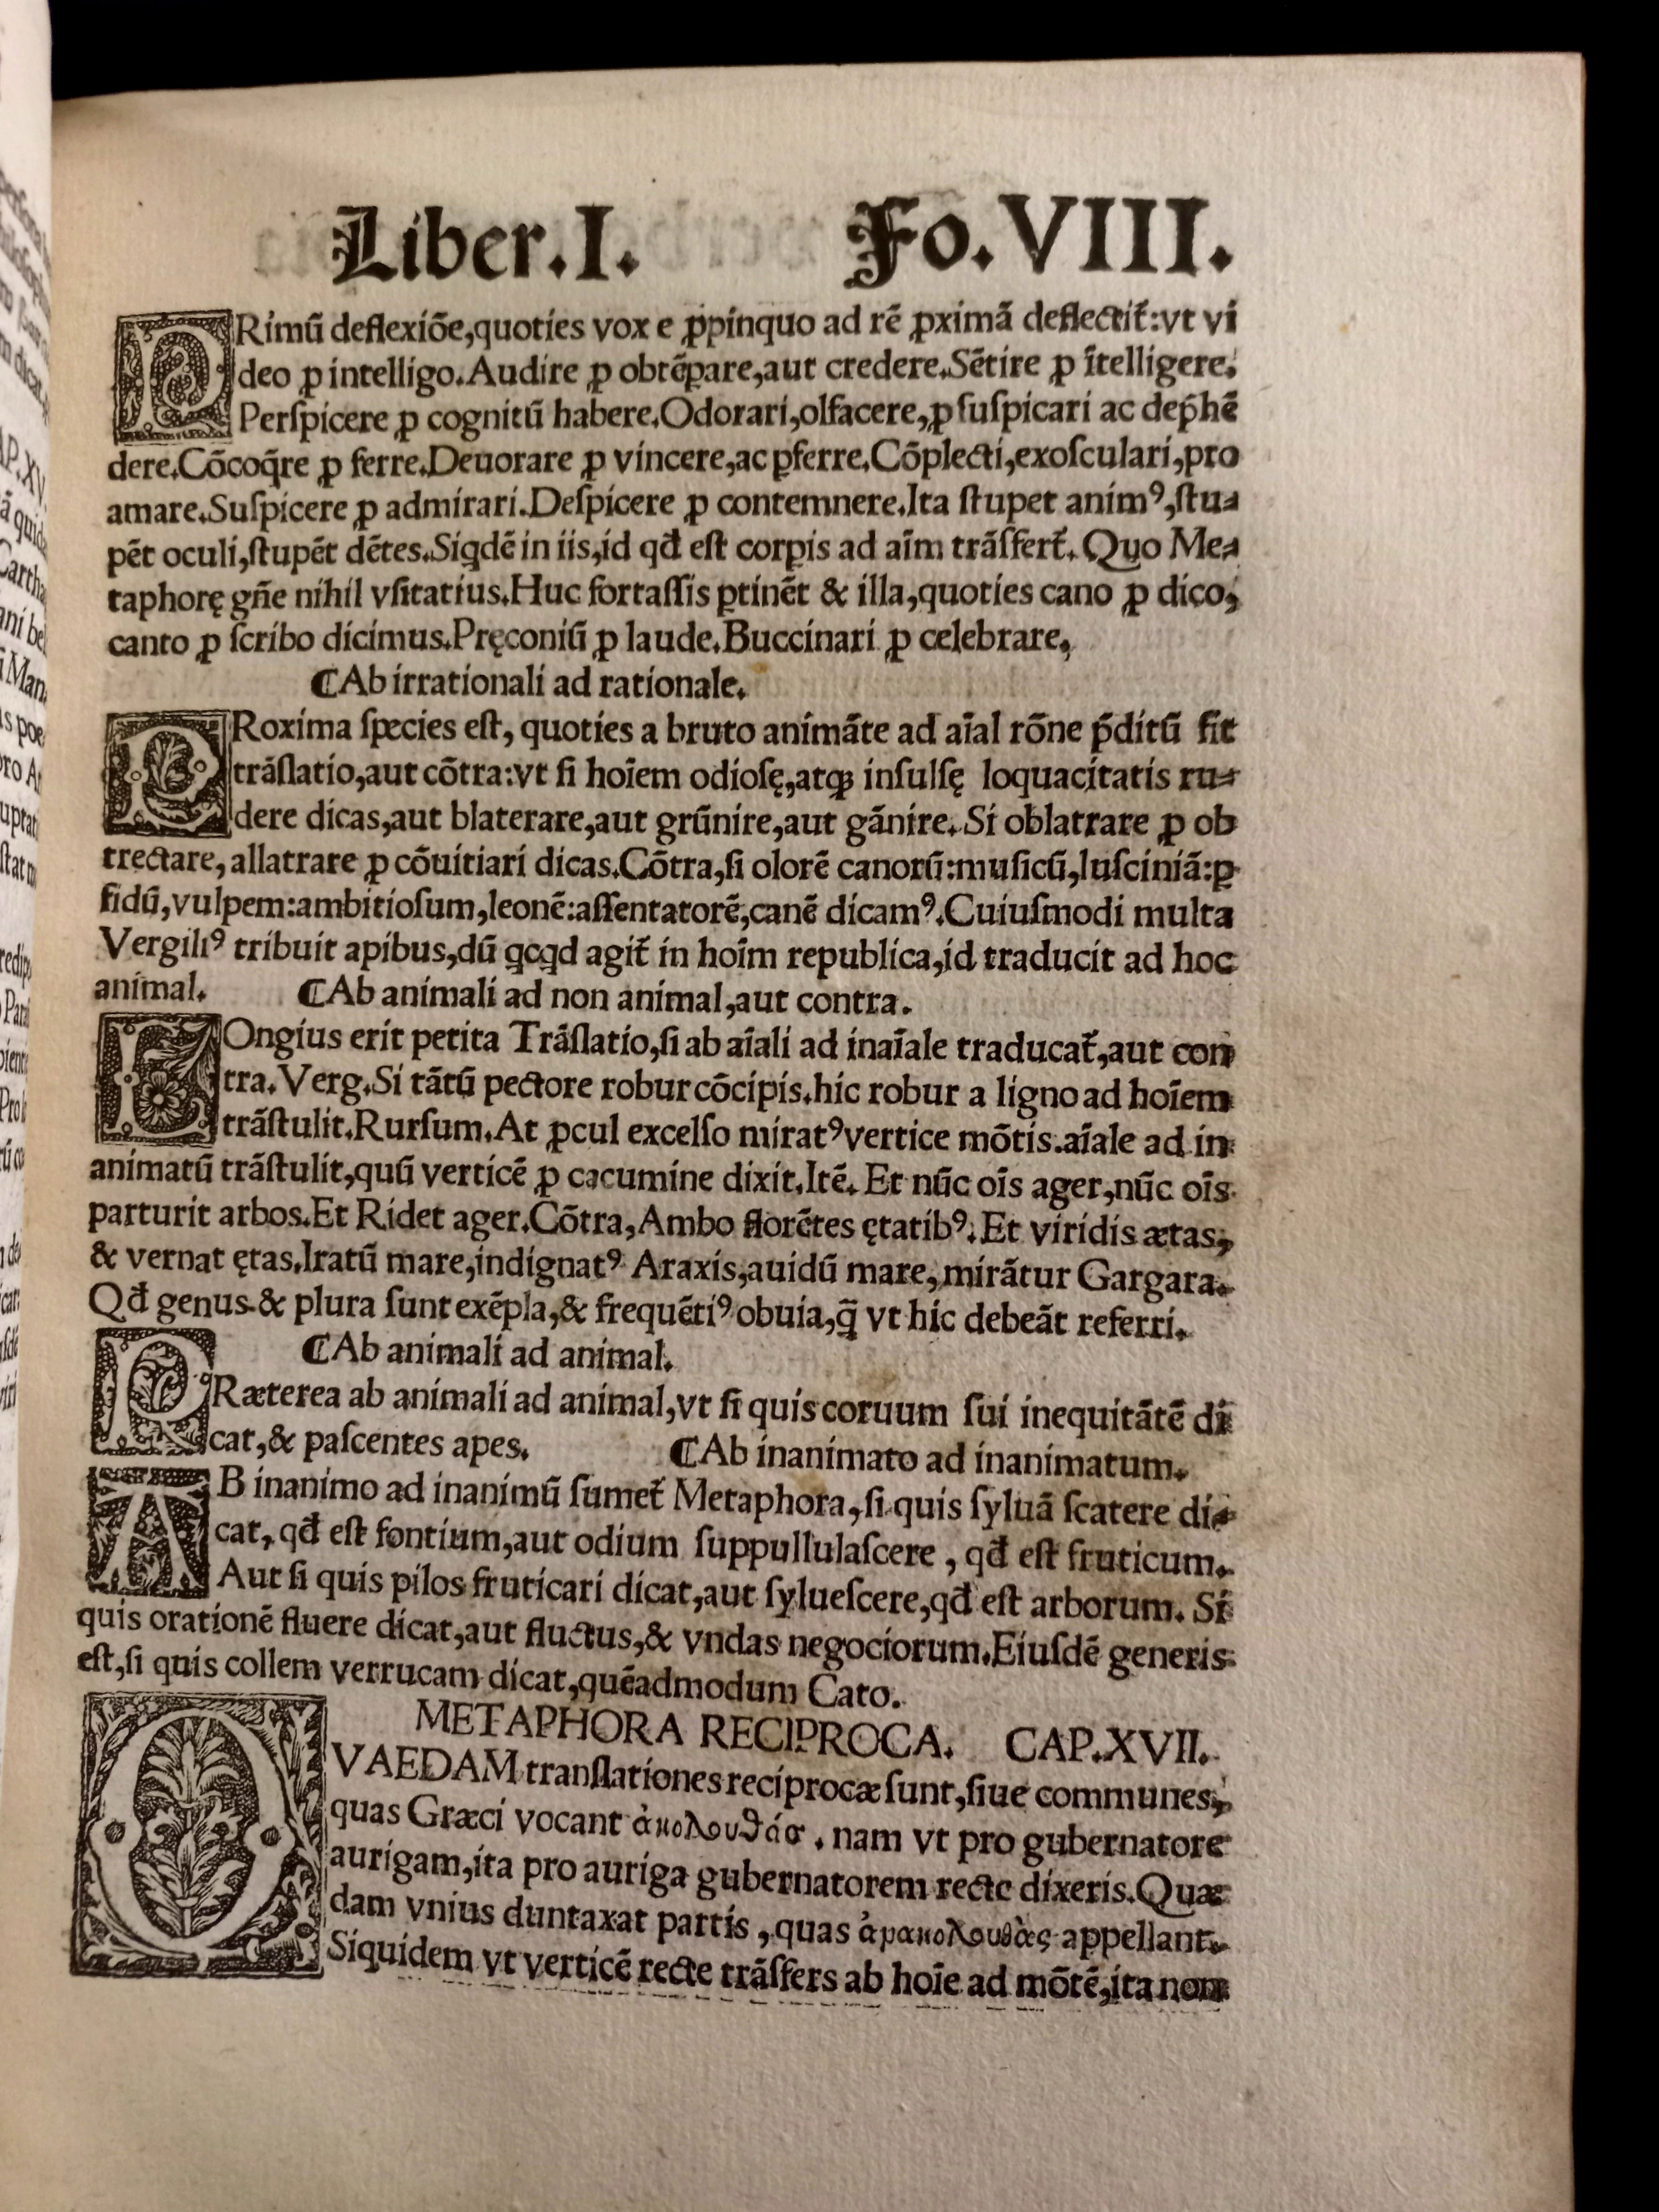 Liber.I. Fo.VIII.
PRimū deflexiōe,quoties vox e ꝓpinquo ad rē ꝓximā deflectit̃:vt vi
deo ꝓ intelligo.Audire ꝓ obtēꝑare,aut credere.Sētire ꝓ ītelligere.
Perſpicere ꝓ cognitū habere.Odorari,olfacere,ꝓ ſuſpicari ac dep̄hē
dere.Cōcoq̄re ꝓ ferre.Deuorare ꝓ vincere,ac ꝑferre.Cōplecti,exoſculari,pro
amare.Suſpicere ꝓ admirari.Deſpicere ꝓ contemnere.Ita ſtupet animꝰ,ſtu⸗
pēt oculi,ſtupēt dētes.Siqdē in iis,id qđ eſt corꝑis ad aīm trāſfert̃.Quo Me⸗
taphorę gn̄e nihil vſitatius.Huc fortaſſis ꝑtinēt & illa,quoties cano ꝓ dico,
canto ꝓ ſcribo dicimus.Pręconiū ꝓ laude.Buccinari ꝓ celebrare.
¶Ab irrationali ad rationale.
PRoxima ſpecies eſt, quoties a bruto animāte ad aīal rōne p̄ditū fit
trāſlatio,aut cōtra:vt ſi hoīem odioſę,atqꝫ inſulſę loquacitatis ru⸗
dere dicas,aut blaterare,aut grūnire,aut gānire. Si oblatrare ꝓ ob
trectare, allatrare ꝓ cōuitiari dicas.Cōtra,ſi olorē canorū:muſicū,luſciniā:ꝑ
fidū,vulpem:ambitioſum,leonē:aſſentatorē,canē dicamꝰ.Cuiuſmodi multa
Vergiliꝰ tribuit apibus,dū qcqd agit̃ in hoīm republica,id traducit ad hoc
animal. ¶Ab animali ad non animal,aut contra.
LOngius erit petita Trāſlatio,ſi ab aīali ad inaīale traducat̃,aut con
tra. Verg.Si tātū pectore robur cōcipis.hic robur a ligno ad hoīem
trāſtulit.Rurſum.At ꝓcul excelſo miratꝰ vertice mōtis.aīale ad in
animatū trāſtulit,quū verticē ꝓ cacumine dixit.Itē. Et nūc oīs ager,nūc oīs
parturit arbos.Et Ridet ager.Cōtra,Ambo florētes ętatibꝰ.Et viridis ætas,
& vernat ętas.Iratū mare,indignatꝰ Araxis,auidū mare,mirātur Gargara.
Qđ genus & plura ſunt exēpla,& frequētiꝰ obuia,q̄ vt hic debeāt referri.
¶Ab animali ad animal.
PRæterea ab animali ad animal,vt ſi quis coruum ſui inequitātē di
cat,& paſcentes apes. ¶Ab inanimato ad inanimatum.
AB inanimo ad inanimū ſumet̃ Metaphora,ſi quis ſyluā ſcatere di⸗
cat, qđ eſt fontium,aut odium ſuppullulaſcere , qđ eſt fruticum.
Aut ſi quis pilos fruticari dicat,aut ſylueſcere,qđ eſt arborum. Si
quis orationē fluere dicat,aut fluctus,& vndas negociorum.Eiuſdē generis
eſt,ſi quis collem verrucam dicat,quēadmodum Cato.
METAPHORA RECIPROCA. CAP.XVII.
QVAEDAM tranſlationes reciprocæ ſunt,ſiue communes,
quas Græci vocant ἀκολουθάσ . nam vt pro gubernatore
aurigam,ita pro auriga gubernatorem recte dixeris.Quæ
dam vnius duntaxat partis , quas ἀμακολουθὰς appellant.
Siquidem vt verticē recte trāſfers ab hoīe ad mōtē,ita non